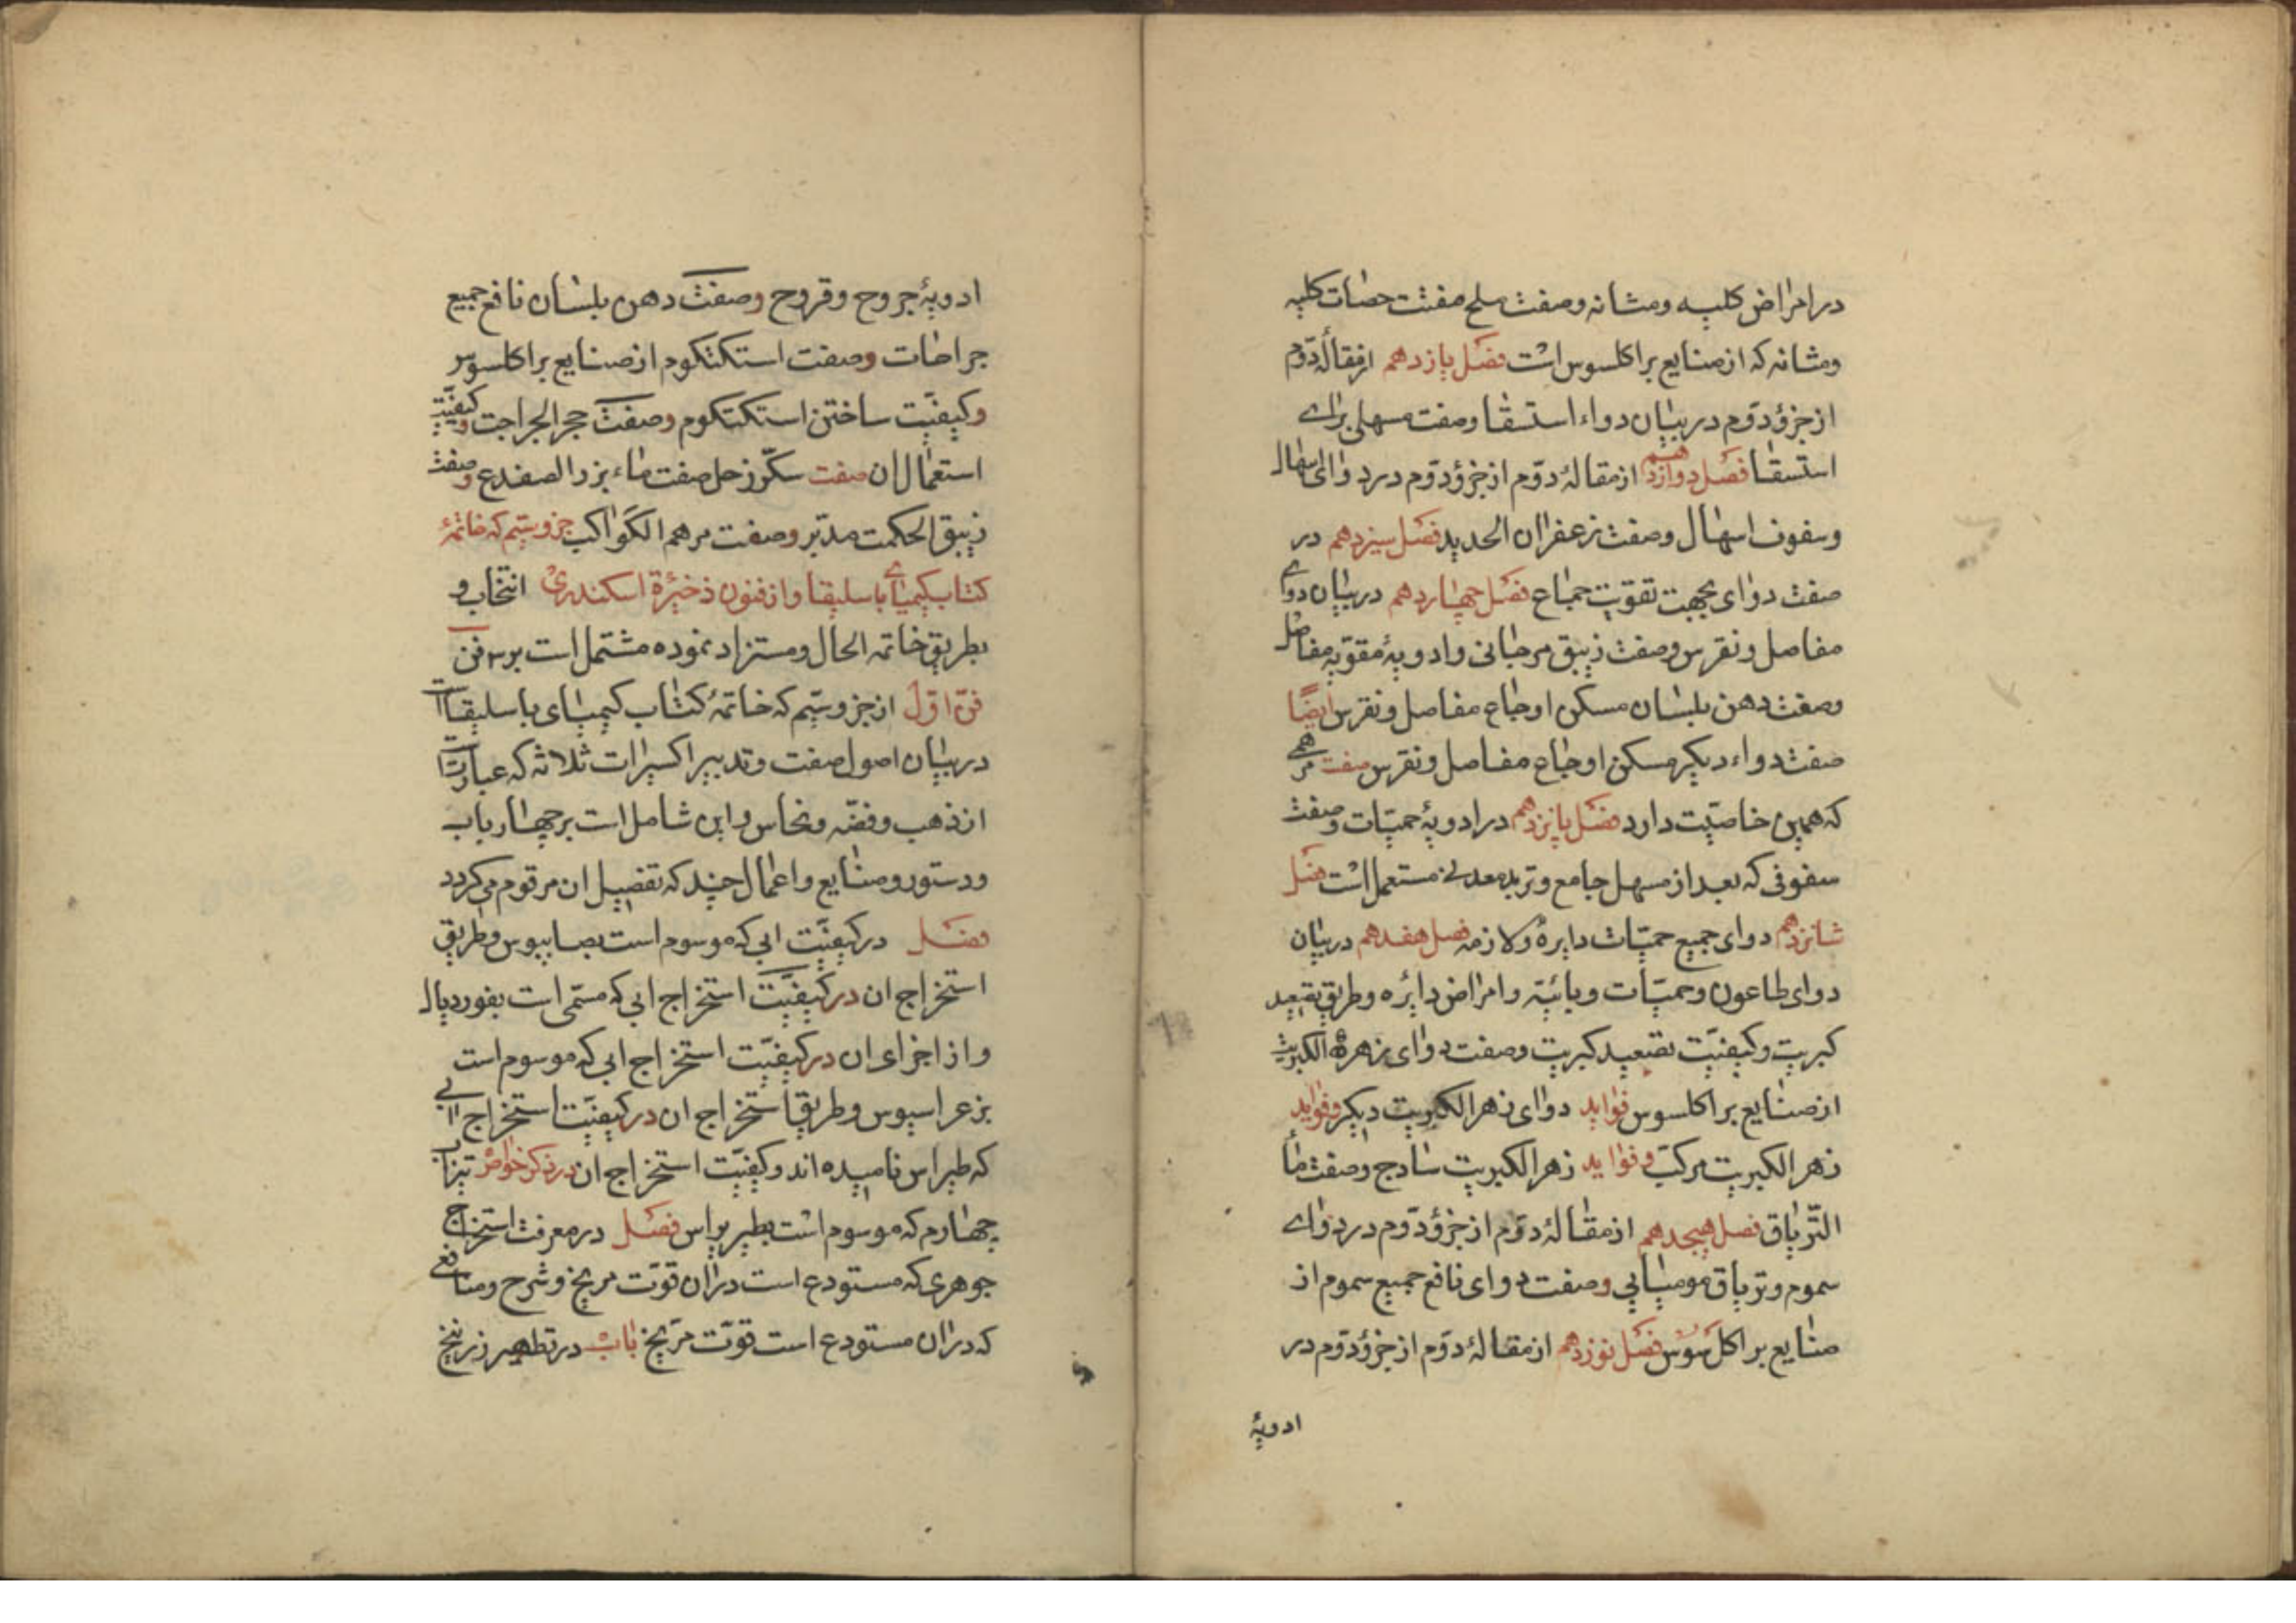 در امراض کلیه ومثانه وصفت ملح مفتت حصات کلیه
ومثانه که از صنایع براکلسوس است فصل یازدهم از مقالهٔ دوّم
از جزؤ دوّم در بیان دواء استسقا وصفت مسهلی برای
استسقا فصل دوازدهم از مقالهٔ دوّم از جزؤ دوّم در دوای اسهال
وسفوف اسهال وصفت زعفران الحدید فصل سیزدهم در
صفت دوای بجهت تقویت جماع فصل چهاردهم در بیان دوای
مفاصل ونقرس وصفت زیبق مرجانی وادویهٔ مقوّیه مفاصل
وصفت دهن بلسان مسکن اوجاع مفاصل ونقرس ایضًا
صفت دواء دیکر مسکن اوجاع مفاصل ونقرس صفت مرهمی
که همین خاصیّت دارد فصل پانزدهم در ادویهٔ حمیّات وصفت
سفوفی که بعد از مسهل جامع وتربد معدنی مستعمل است فصل
شانزدهم دوای جمیع حمیّات دایرهٔ ولازمه فصل هفدهم در بیان
دوای طاعون وحمیّات وبائیّه وامراض دایره وطریق تصعید
کبریت وکیفیّت تصعید کبریت وصفت دوای زهرة الکبریت
از صنایع براکلسوس فواید دوای زهر الکبریت دیکر وفواید
زهر الکبریت مرکّب وفواید زهر الکبریت سادج وصفت ماأ
التّریاق فصل هیجدهم از مقالهٔ دوّم از جزؤ دوّم در دوای
سموم وتریاق مومیایی وصفت دوای نافع جمیع سموم از
صنایع براکلسوس فصل نوزدهم از مقالهٔ دوّم از جزؤ دوّم در
ادویهٔ
ادویهٔ جروح وقروح وصفت دهن بلسان نافع جمیع
جراحات وصفت استکتکوم از صنایع براکلسوس
وکیفیّت ساختن استکتکوم وصفت حجر الجراجت وکیفیّت
استعمال ان صفت سکّر زحل صفت ماء بزر الضفدع وصفت
زیبق الحکمت مدبّر وصفت مرهم الکواکب جزو سیّم که خاتمهٔ
کتاب کیمیای باسلیقا واز فنون ذخیرهٔ اسکندری انتخاب و
بطریق خاتمه الحال ومستزاد نموده مشتمل است بر سه فن
فنّ اوّل از جزو سیّم که خاتمهٔ کتاب کیمیای باسلیقا است
در بیان اصول صفت وتدبیر اکسیرات ثلاثه که عبارتست
از ذهب وفضّه ونحاس واین شامل است بر چهار باب
ودستور وصنایع واعمال چند که تفصیل ان مرقوم می کردد
فصل در کیفیّت ابی که موسوم است بصابیوس وطریق
استخراج ان در کیفیّت استخراج ابی که مسمّی است بفوردیال
واز اجزای ان در کیفیّت استخراج ابی که موسوم است
بزعراسیوس وطریق استخراج ان در کیفیّت استخراج ابی
که طیراس نامیده اند وکیفیّت استخراج ان در ذکر خواص تیزاب
چهارم که موسوم است بطیریراس فصل در معرفت استخراج
جوهری که مستودع است در ان قوّت مریخ وشرح ومنافعی
که در ان مستودع است قوّت مرّیخ باب در تطهیر زرنیخ